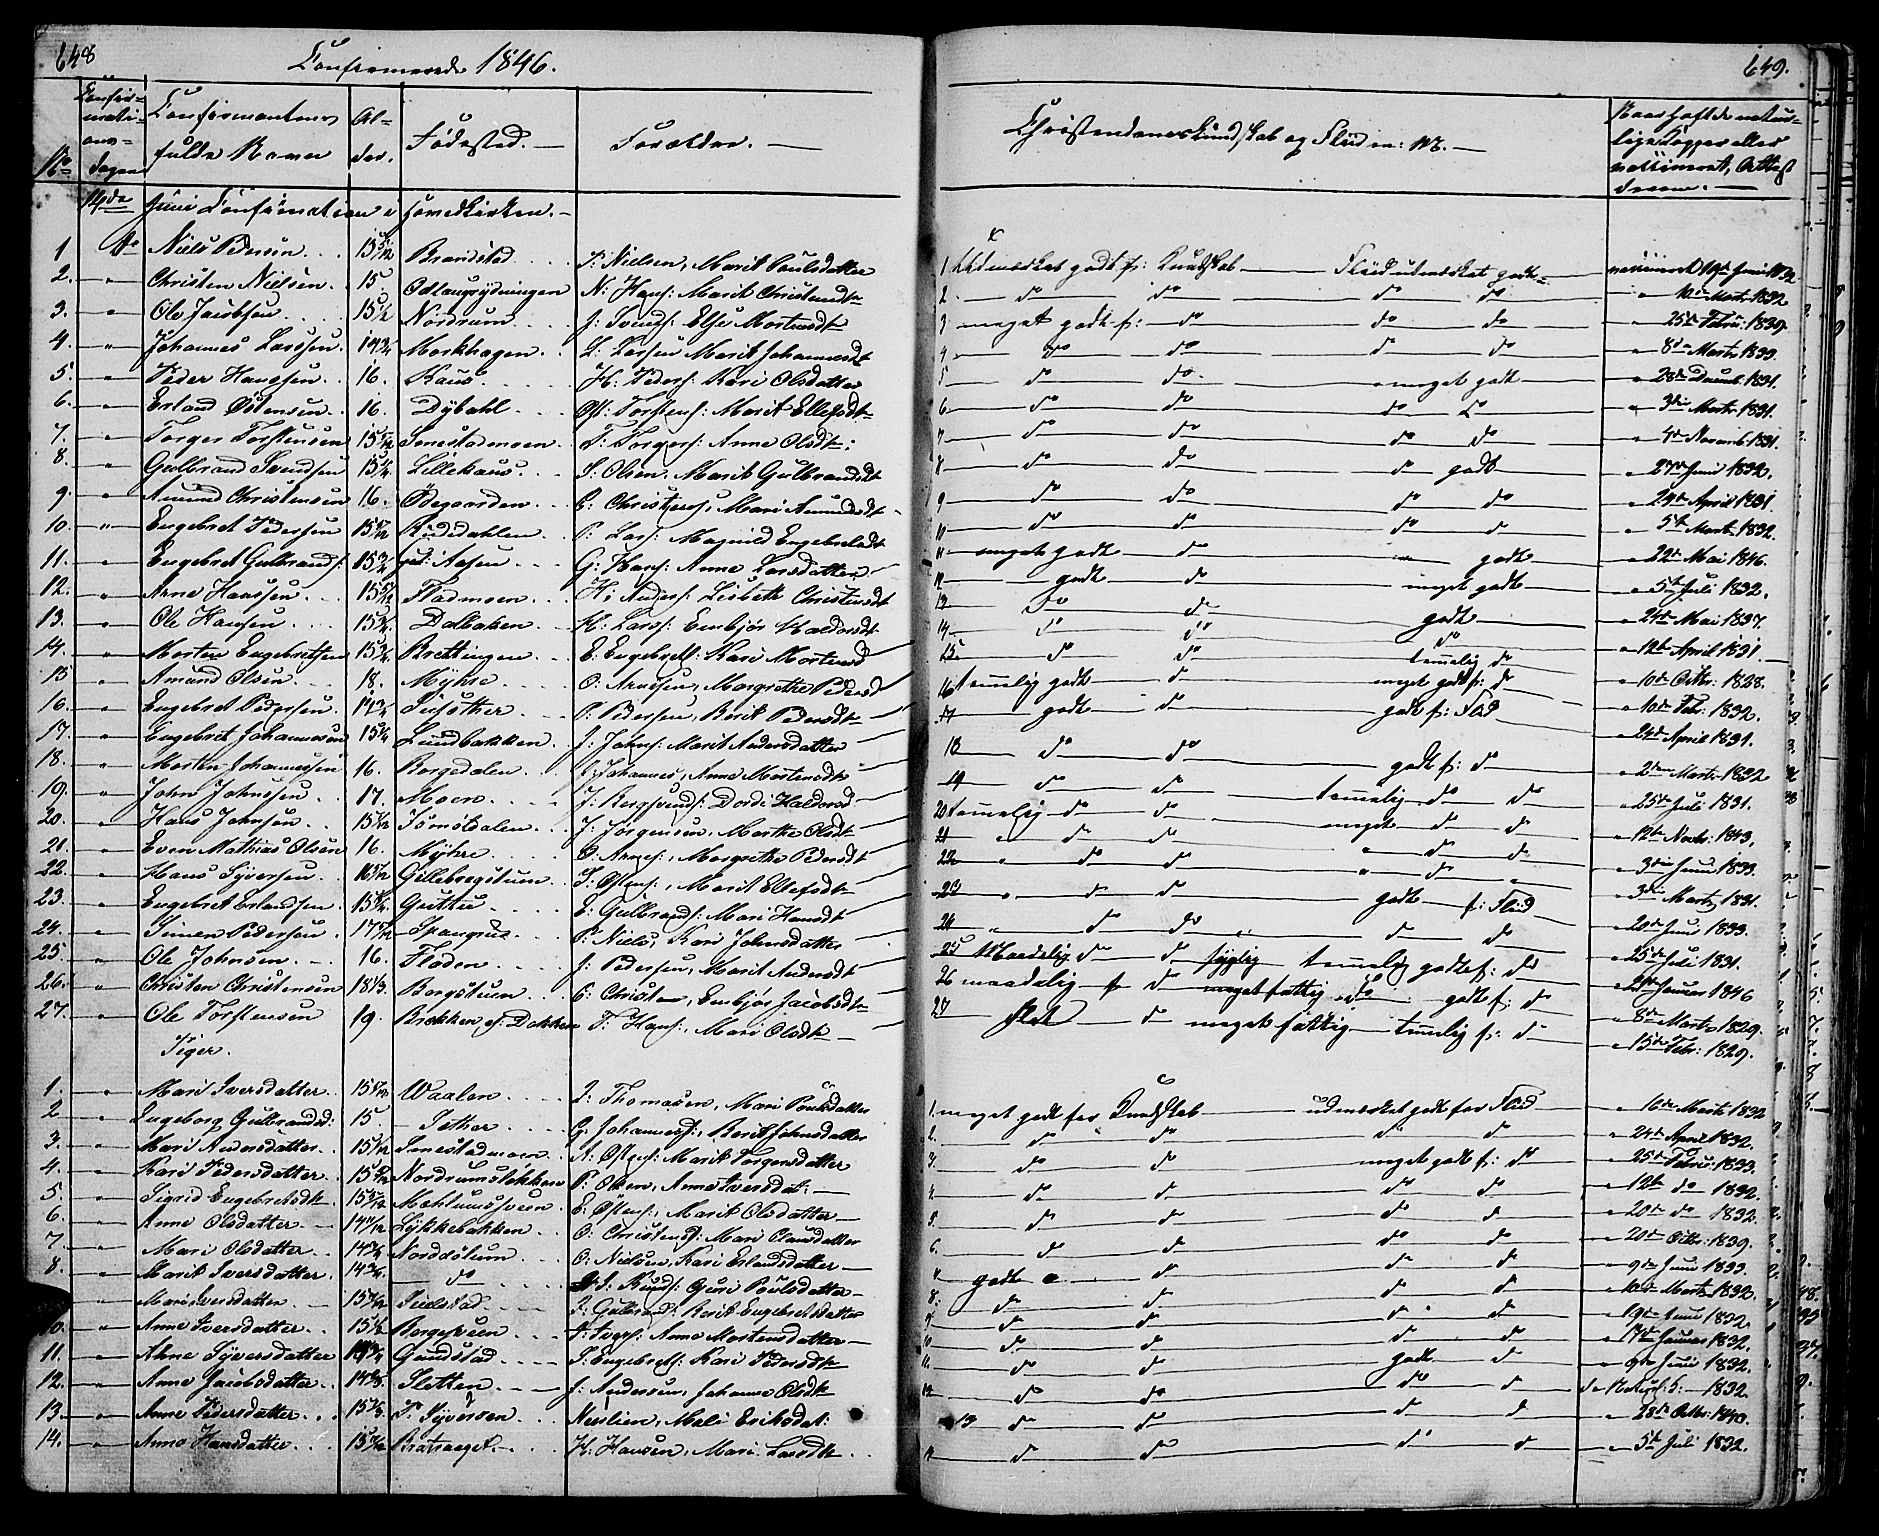 648
Confirmerede 1846.
No
Confir=
mati=
ons=
dagen
Confirmantens
fulde Navn
Al=
der.
Fødested.—
Forældre.—
14de Juni Confirmation i Hovedkirken.—
1 Do Niels Pedersen . . . 15 5/12 Brandstad . . . P: Nielsen, Marit Poulsdatter
2. " Christen Nielsen . 15. Odlaugrydningen N: Hans: Marit Christensdt
3. " Ole Jacobsen . . . 15 1/2 Nordrum . . . J: Svends: Else Mortensdt
4. " Johannes Larssen . 14 3/4 Morkhagen . . L: Larsen Marit Johannesdt
5. " Peder Hanssen . . 16. Kaus . . . H: Peders: Kari Olsdatter
6. " Erland Østensen . 16. Dybahl . . . Øst: Torstens: Marit Ellefsdt
7. " Torger Torstensen Sonestadmoen . T: Torgers: Anne Olsdt:
8. " Gulbrand Svendsen 15 Lillekaus . . S: Olsen, Marit Gulbrandsdt
9. " Amund Christensen 16. Ødegaarden . . C: Christens: Mari Amundsdt
10. " Engebret Pedersen 15 Rudsdahlen . . P: Lars: Magnild Engebretsdt
11. " Engebret Gulbrands: 15 Aasen . . G: Hans: Anne Larsdatter
12. " Arne Hanssen . . 15 Fladmoen . . H: Anders: Lisbeth Christensdt
13. " Ole Hansen . . . 15 Dalbakken . . H: Lars: Embjør Haldorsdt
14. " Morten Engebretsen 15 Brettingen . . E: Engebrets: Kari Mortensd
15 " Amund Olsen . . . 18. Myhre . . . O: Arnesen, Margrethe Pedersd
16. " Engebret Pedersen . 14 . . P: Pedersen, Berit Pedersdt
17. " Engebret Johannesen 15 Lundbakken . J: Johns: Marit Andersdatter
18. " Morten Johannessen 16. Borgedalen . . J: Johannes, Anne Mortensdt
19. " John Johnsen . . 17. Moen . . . J: Bergsvends: Dordi Haldorsd
20. " Hans Johnsen . . 15 . . J: Jørgensen, Marthe Olsdt
21. " Even Mathias Olsen 16. Myhre . . . O: Arnes:, Margrethe Pedersdt
22. " Hans Syversen . . 16 Gillebergstuen . . S: Østens:, Marit Ellefsdt
23. " Engebret Erlandsen . 15 . . E: Gulbrands: Mari Hansdt
24. " Simen Pedersen . . 17 . . P: Niels, Kari Johnsdatter
25. " Ole Johnsen . . . 16. Floden . . . J: Pedersen, Marit Andersdt
26. " Christen Christensen 18 1/3. Borgstuen . . C: Christen, Embjør Jacobsdt
27. " Ole Torstensen 19. Brekken T: Hans:, Mari Olsdt
Piger.
1. " Mari Iversdatter . . 15 Waalen . . . I: Thomasen, Mari Poulsdatter
2 " Ingeborg Gulbrandsd: 15. Sether . . . G: Johanness: Berit Johnsdatter
3. " Mari Andersdatter . 15 Sonestadmoen . A: Østens: Marit Torgersdatter
4. " Kari Pedersdatter . 15 Nordrumsløkken P: Olsen, Anne Iversdat:
5. " Sigrid Engebretsdt . 15 . . E: Østens: Marit Olsdatter
6. " Anne Olsdatter . . 14 Lykkebakken . . O: Christens: Mari Clausdatter
7. " Mari Olsdatter . . 14 . . O: Nielsen, Kari Erlandsdatter
8. " Marit Iversdatter . 14 do I: Knuds: Guri Poulsdatter
" Mari Iversdatter . . 15 . . I: Gulbrands: Berit Engebretsdatter
10. " Anne Iversdatter . . 15 . . Anne Mortensdatter
11. " Anne Syversdatter Gundstad . . . S: Engebrets: Kari Pedersdt
12. " Anne Jacobsdatter . 14 Sletten . . . J: Andersen, Johanne Olsdt
13. " Anne Pedersdatter . . 15 P. Syversen . . . Meli Eriksdat:
14. " Anne Hansdatter . . 15 . . H: Hansen, Mari Larsdt . .
649.
Christendomskundskab og Flid m: M.—
Naar havt de natur=
lige Kopper eller
vaccineret, Attest
derom.—
1 Udmærket godt f: Kundskab — Flid udmærket godt — vaccineret 19de Juni 1832
2. — do — do — do do — " 10de Marts 1832
3 meget godt f: — do — do do — " 25de Febru: 1839.
4. — do — do — do do — " 8de Marts 1833.
5 — do — do — meget godt — " 28de Decemb. 1831.
6 — do — do — do do — " 3die Marts 1831.
7 — do — do — do do — " 4de Novemb. 1831.
8 — do — do — do godt — " 27de Juni 1832.
9 — do — do — do do — " 24de April 1831
10 — do — do — do do — " 5te Marts 1832.
11 — meget godt — do — " godt — " 22de Mai 1846.
12 — godt — do — meget godt — " 5te Juli 1832.
13 — do — do — godt — " 24de Mai 1837.
14. — do — do — do — " 12te April 1831
15. — do — do — temmelig do — " 10de Octbr: 1828.
16 temmelig godt — do — meget godt f: do — " 10de Febr: 1832.
17 — godt — do — godt f: Flid — 24de April 1831.
18 — do — do — godt f: do — " 2den Marts 1832
19 — do — do — temmelig do do — " 25de Juli 1831.
20 temmelig do — do — meget do do — " 12te Novbr: 1843.
21 " do do — " do do — " 3die Juni 1833.
22 " do do — " do " — " 3die Marts 1831.
23 " do do — godt f: Flid — " 20de Juni 1833.
24 " do do — do do — " 25de Juli 1831.
25 Maadelig do — do temmelig godt f: do — " Januar 1846
26 maadelig f: do meget fattig do godt f: do — " 8de Marts 1829.
27 slet — do meget fattig — temmelig f: do — " 15de Febr: 1829.
1. meget godt for Kundskab — udmærket godt for Flid — " 10de Marts 1832
2. — do — do — do do — " 24de April 1832.
3. — do — do — meget godt f: do — " 25de Febru: 1833.
4 — do — do — do do — " 12te do 1832.
5. — do — do — do do — " 20de do 1832.
6. — do — do — do do — " 20de Octbr: 1839.
godt — do — do do — " 9de Juni 1833.
8. — do — do — do do — " 10de Marts 1832.
9 — do — do — do do — " 19de Juni 1832.
10 — do — do — do do — " 17de Januar 1832.
11. — do — do — godt do — " 9de Juni 1832.
12 — do — do — do do 1832.
13 — do — do — do do — " 28de Octbr: 1840.
do — do — do do — " 5te Juli 1832.